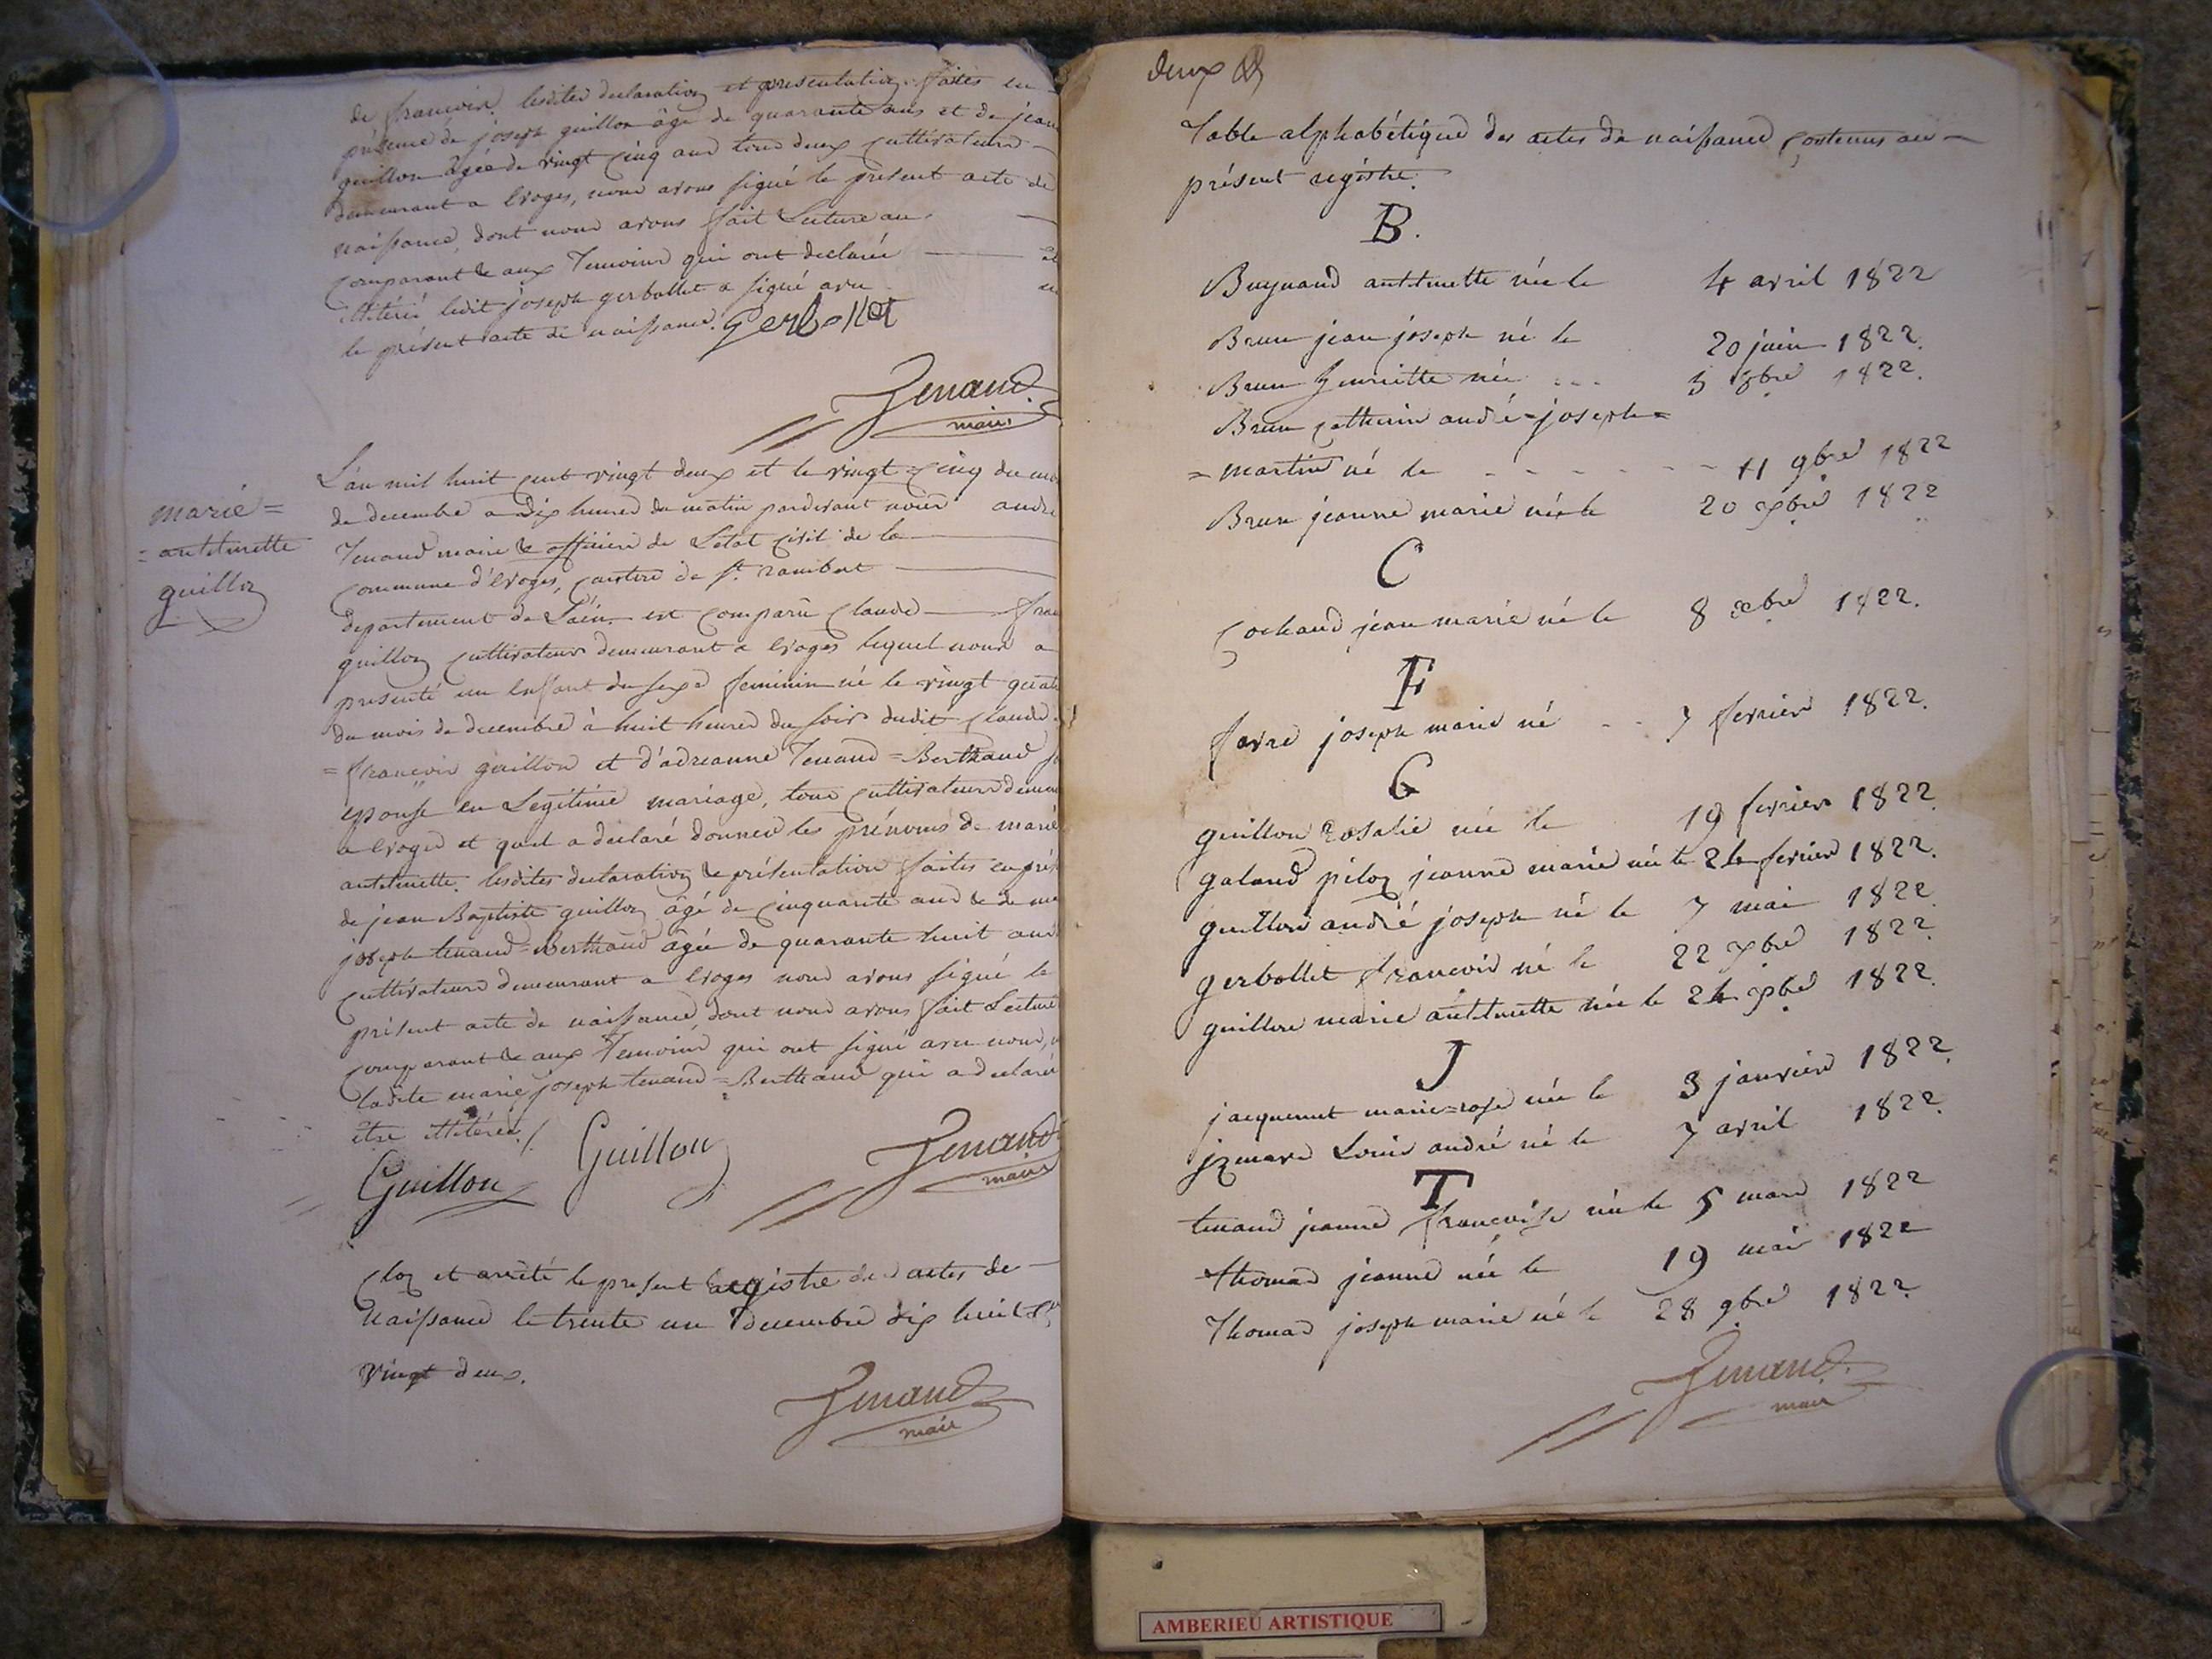 de françois. lesdites declaration et presentation faites en
présence de joseph guillon âgé de quarante ans et de jean
guillon âgée de vingt cinq ans tous deux cultivateurs
demeurant a Evoges, nous avons signé le présent acte de
naissance, dont nous avons fait Lecture au
comparant & aux Temoins qui ont declaré
illitéré ledit joseph gerbollet a signé avec
le présent acte de naissance. Gerbollet
Tenand
maire
marie =
= anthelmette
guillon
L'an mil huit cent vingt deux et le vingt = cinq du mois
de decembre a Dix heures du matin pardevant nous andré
Tenand maire & officier de L'état civil de la
commune d'Evoges, canton de St. rambert
departement de L'ain. est comparu Claude fran
guillon cultivateur demeurant a Evoges lequel nous a
presenté un Enfant du sexe feminin né le vingt quatre
du mois de decembre à huit heures du soir dudit Claude
= françois guillon et d'adreanne Tenand = Berthaud
epouse en Legitime mariage, tous cultivateurs
a Evoges et quel a declaré donner les prénoms de marie
anthelmette. lesdites declaration & présentation faites en
de jean Baptiste guillon âgé de cinquante ans & de
joseph tenand = Berthaud âgée de quarante huit ans
cultivateurs demeurant a Evoges nous avons signé le
présent acte de naissance, dont nous avons fait Lecture
comparant & aux Temoins qui ont signé avec nous,
ladite marie joseph tenand = Berthaud qui a declaré
être illitérée ./
Guillon Guillon Tenand
maire
Clos et arrêté le present Registre des actes de
Naissance le trente un Decembre dix huit Ct
vingt deux.
Tenand
maire
deux
Table alphabétique des actes de naissance contenus au
présent régistre.
B.
Buynand anthelmette née le 4 avril 1822
Brun jean joseph né le 20 juin 1822.
Brun henriette née ... 5 8bre 1822.
Brun catherin andré = joseph =
= martin né le - - - - - - 11 9bre 1822
Brun jeanne marie née le 20 xbre 1822
C
Cochand jean marie né le 8 xbre 1822.
F
favre joseph marie né - - 7 fevrier 1822.
G
guillon Rosalie née le 19 fevrier 1822.
galand pilon jeanne marie née le 24 fevrier 1822.
guillon andré joseph né le 7 mai 1822.
gerbollet françois né le 22 xbre 1822.
guillon marie anthelmette née le 24 xbre 1822.
J
jacquemet marie = rose née le 3 janvier 1822.
jzmard Louis andré né le 7 avril 1822.
T
tenand jeanne françoise née le 5 mars 1822
thomas jeanne née le 19 mai 1822
Thomas joseph marie né le 28 9bre 1822.
Tenand
maire
AMBERIEU ARTISTIQUE